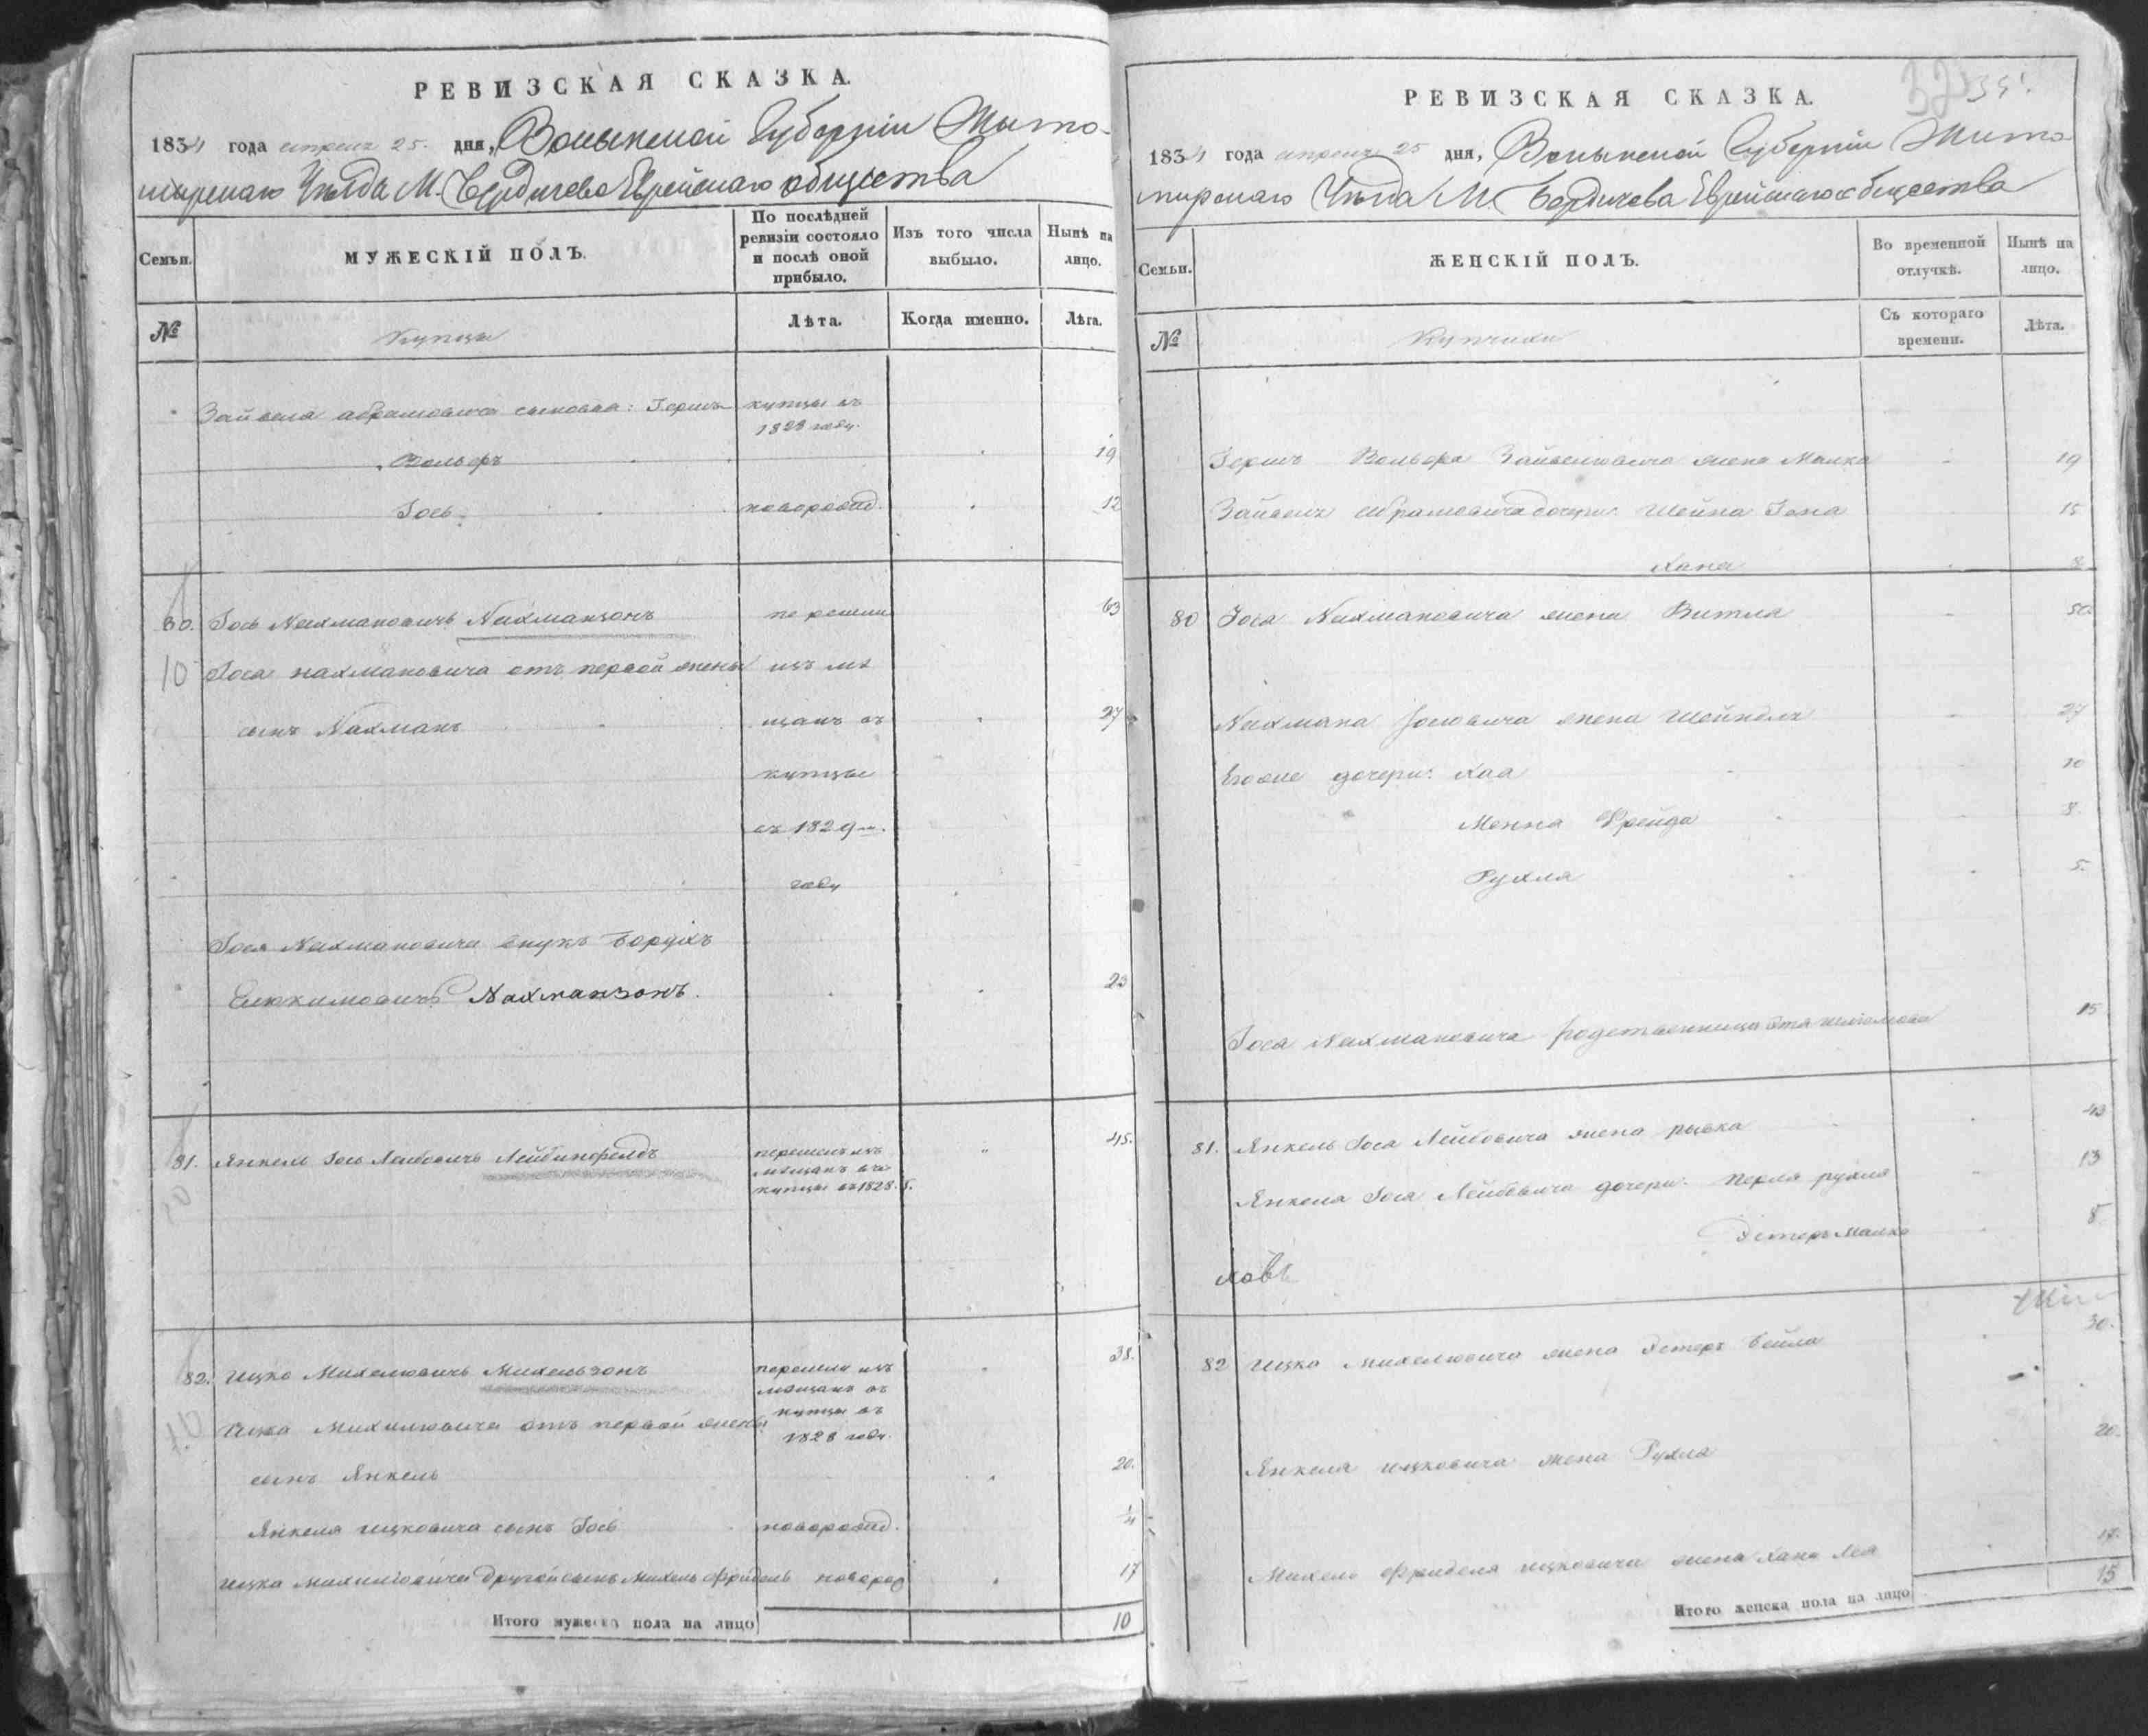 РЕВИЗСКАЯ СКАЗКА.
1834 года апреля 25. дня, Волынской Губерніи Жыто-
мырскаго Уѣзда М. Бердичева Еврейскаго общества
Семьи.
МУЖЕСКІЙ ПОЛЪ.
По послѣдней ревизіи состояло и послѣ оной прибыло.
Изъ того числа выбыло.
Нынѣ на лицо.
№
Купцы
Лѣта.
Когда именно.
Лѣта.
Зайвеля абрамовича сыновья: Гершъ купцы въ
1828 году.
Вольфъ 19
Іось новорожд. 12
80. Іось Нахмановичь Нахманзонъ перешли 63
10 Іося нахмановича отъ первой жены изъ мѣ
сынъ Нахманъ щанъ въ 27
купцы
въ 1829м.
году
Іося Нахмановича внукъ Бордіхъ
Нахманзонъ. 23
81. Янкель Іось Лейбовичь Лейбинфелдъ перешелъ изъ 45.
мѣщанъ въ
купцы въ 1828.
82. Ицко Михелевичь Михельзонъ перешли изъ 38.
мѣщанъ въ
Ицка Михелевича отъ первой жены купцы въ
1828 году.
сынъ Янкель 20.
Янкеля ицковича сынъ Іось новорожд. 1/4
Ицка михелевича другой сынъ Михель Фридель новорож 17
Итого мужеска пола на лицо 10
РЕВИЗСКАЯ СКАЗКА.
1834 года апреля 25 дня, Волынской Губерніи Жито
мирскаго Уѣзда М. Бердичева Еврейскаго общества
Семьи.
ЖЕНСКІЙ ПОЛЪ.
Во временной отлучкѣ.
Нынѣ на лицо.
№
Купчихи
Съ котораго времени.
Лѣта.
Гершъ Вольфа Зайвелевича жена Малка 19
Зайвель абрамовича дочери: Шейна 15
Хана 8
80 Іося Нахмановича жена Витля 50.
Нахмана Іосьовича жена Шейндля 27
Егоже дочери: Хая 10
Менна Фрейда 8.
Рухля 5.
Іося Нахмановича родственница 15
81. Янкель Іося Лейбовича жена рывка 43
Янкеля Іося Лейбовича дочери: перля рухля 13
Эстеръ малка 8
82 Ицка михелевича жена Эстеръ Бейла 30.
Янкеля ицковича жена Рухля 20.
Михель Фриделя ицковича жена Хана Лея 17.
Итого женска пола на лицо 15